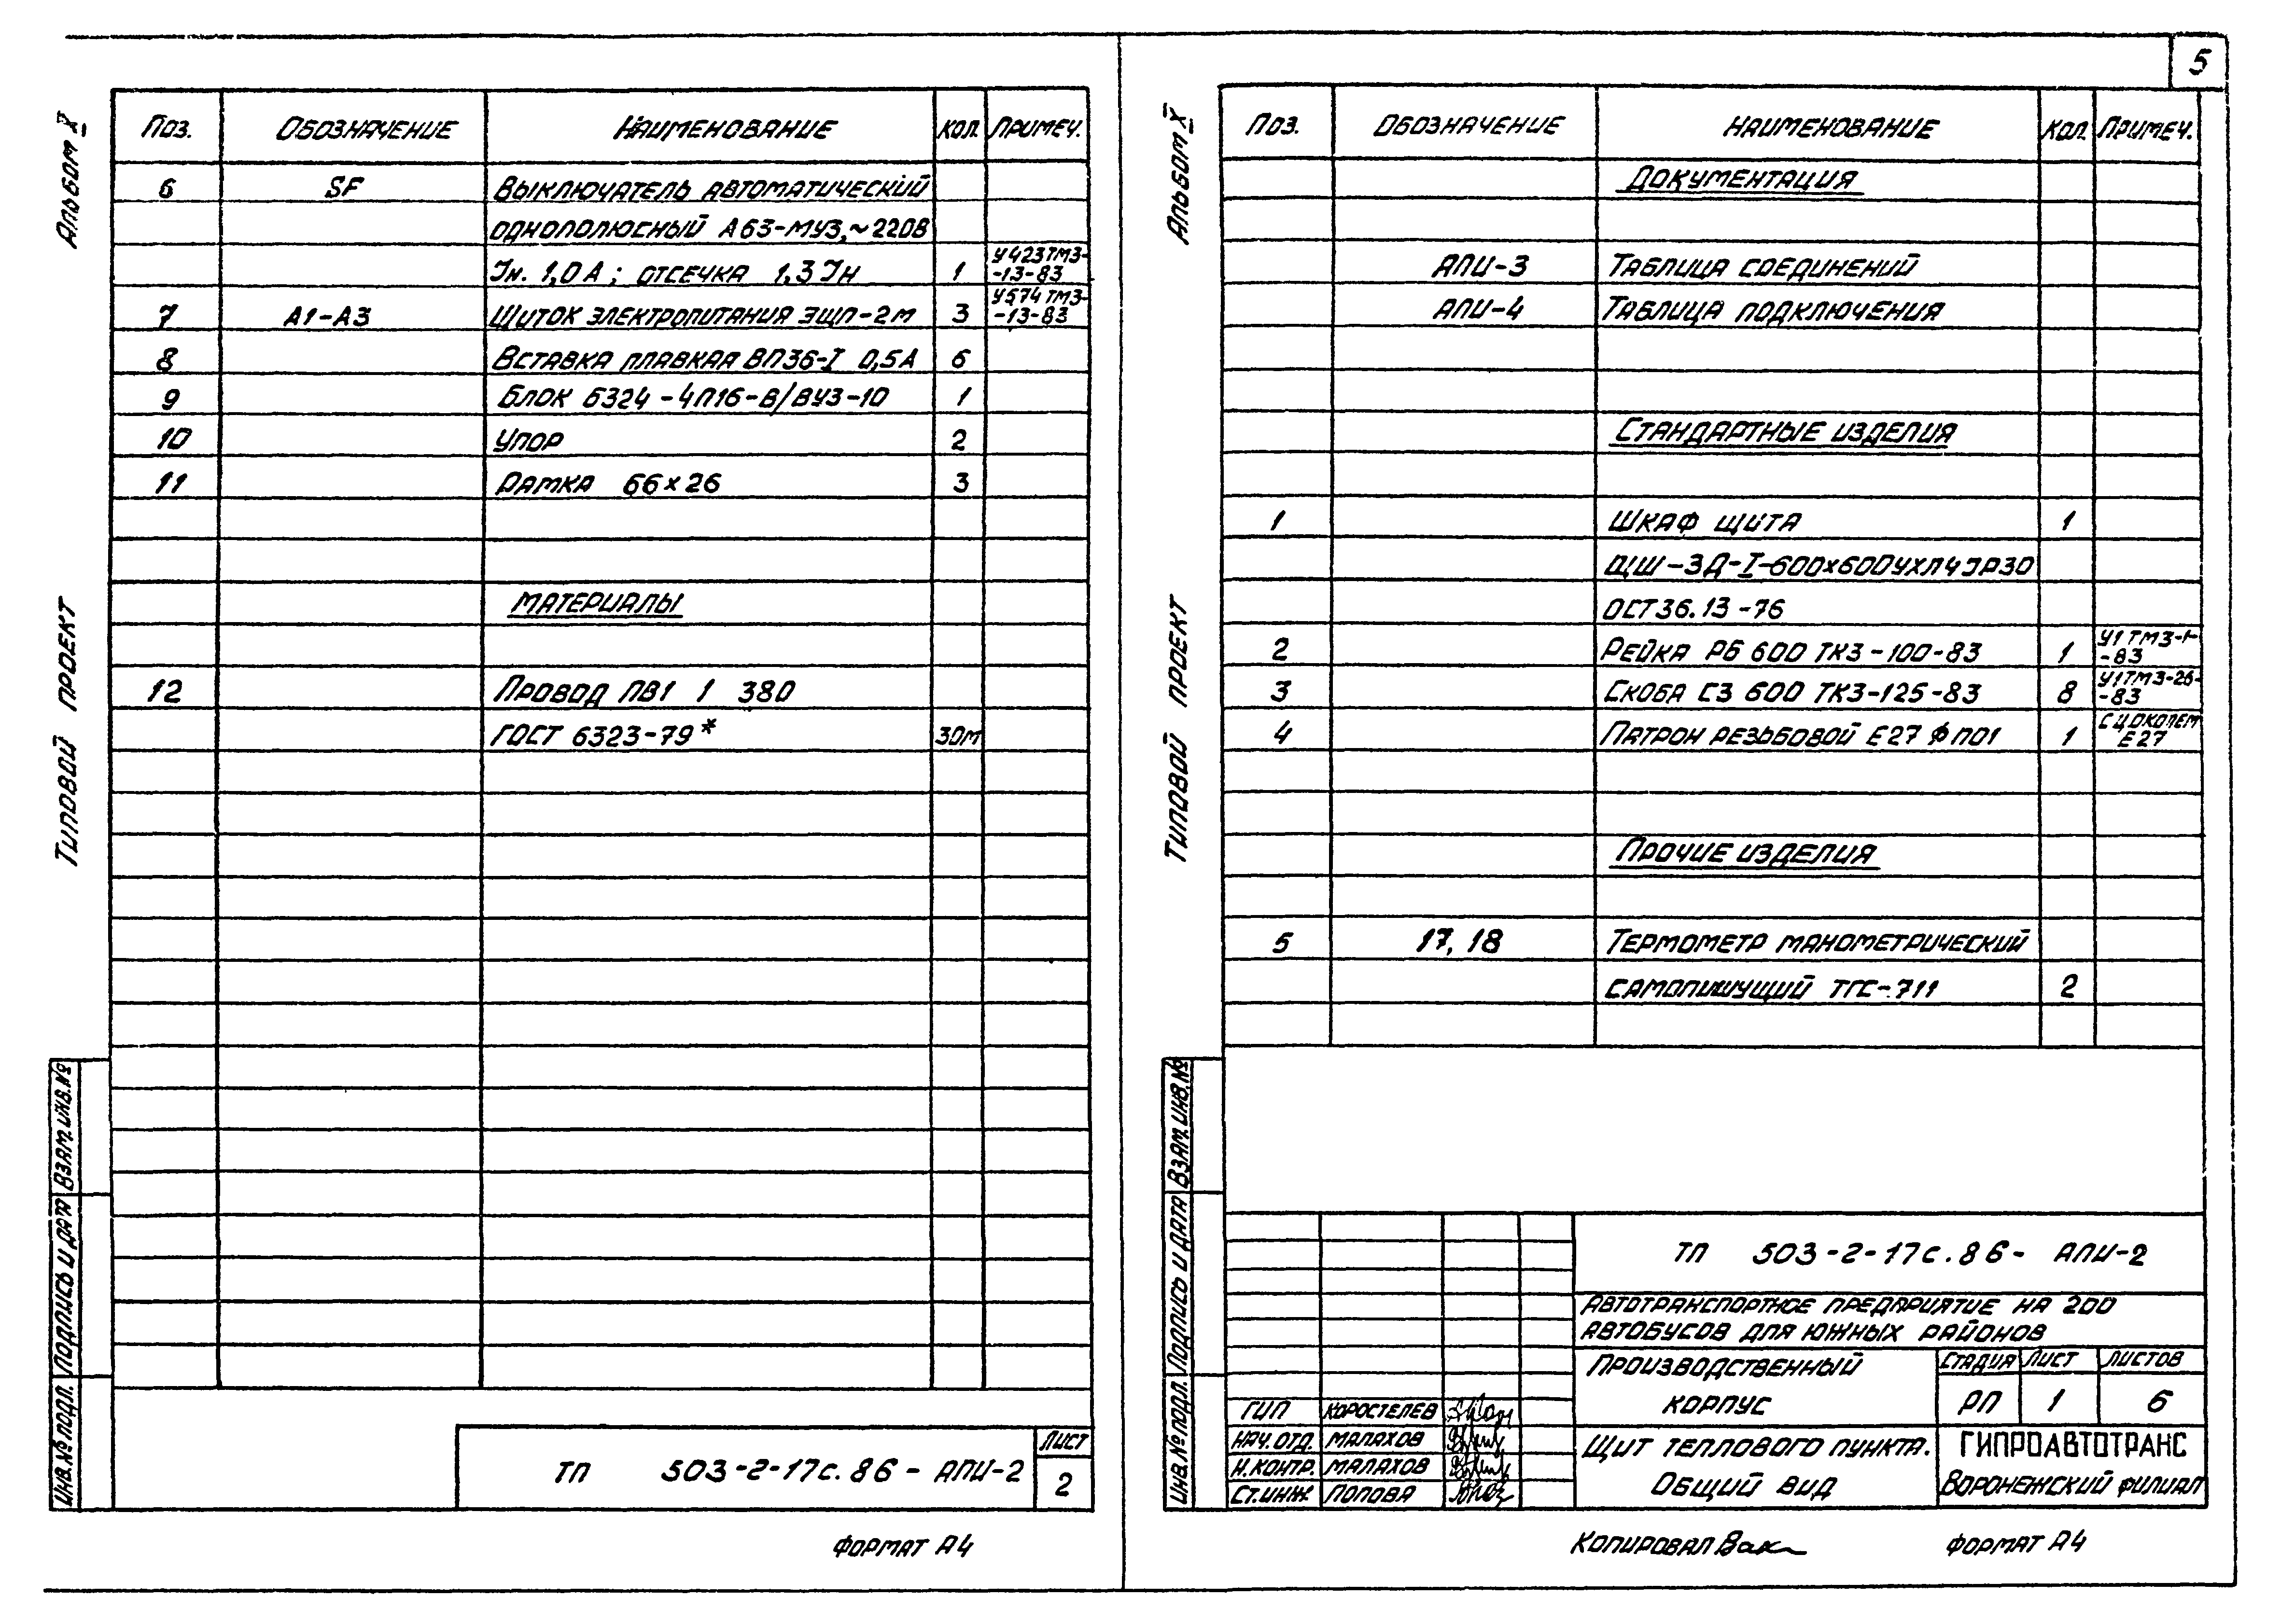 5
Альбом X
Типовой проект
Поз. Обозначение Наименование Кол. Примеч.
6 SF Выключатель автоматический
однополюсный А63-МУ3,~220В
Iн. 1,0А; отсечка 1,3 Iн 1 У423ТМ3-
-13-83
7 А1-А3 Щиток электропитания ЭЩП-2м 3 У574 ТМ3-
-13-83
8 Вставка плавкая ВП36-I 0,5А 6
9 Блок Б324-4П16-В/ВУ3-10 1
10 Упор 2
11 Рамка 66х26 3
Материалы
12 Провод ПВ1 1 380
ГОСТ 6323-79* 30м
Взам. инв. №
Подпись и дата
Инв. № подл.
ТП 503-2-17с.86- АПИ-2
Лист
2
Формат А4
Альбом X
Типовой проект
Поз. Обозначение Наименование Кол. Примеч.
Документация
АПИ-3 Таблица соединений
АПИ-4 Таблица подключения
Стандартные изделия
1 Шкаф щита 1
ЩШ-ЗД-I-600х600УХЛ4 IР30
ОСТ36.13-76
2 Рейка РБ 600 ТК3-100-83 1 У1 ТМ3-1-
-83
3 Скоба С3 600 ТК3-125-83 8 У1ТМ3-26-
-83
4 Патрон резьбовой Е27 ФП01 1 С цоколем
Е27
Прочие изделия
5 17, 18 Термометр манометрический
самопишущий ТГС-711 2
Взам. инв. №
Подпись и дата
Инв. № подл.
ТП 503-2-17с.86- АПИ-2
Автотранспортное предприятие на 200
автобусов для южных районов
Производственный
корпус
Стадия Лист Листов
РП 1 6
ГИП Коростелев
Нач. отд. Малахов
Н. контр. Малахов
Ст. инж Попова
Щит теплового пункта.
Общий вид
ГИПРОАВТОТРАНС
Воронежский филиал
Копировал Вак
Формат А4